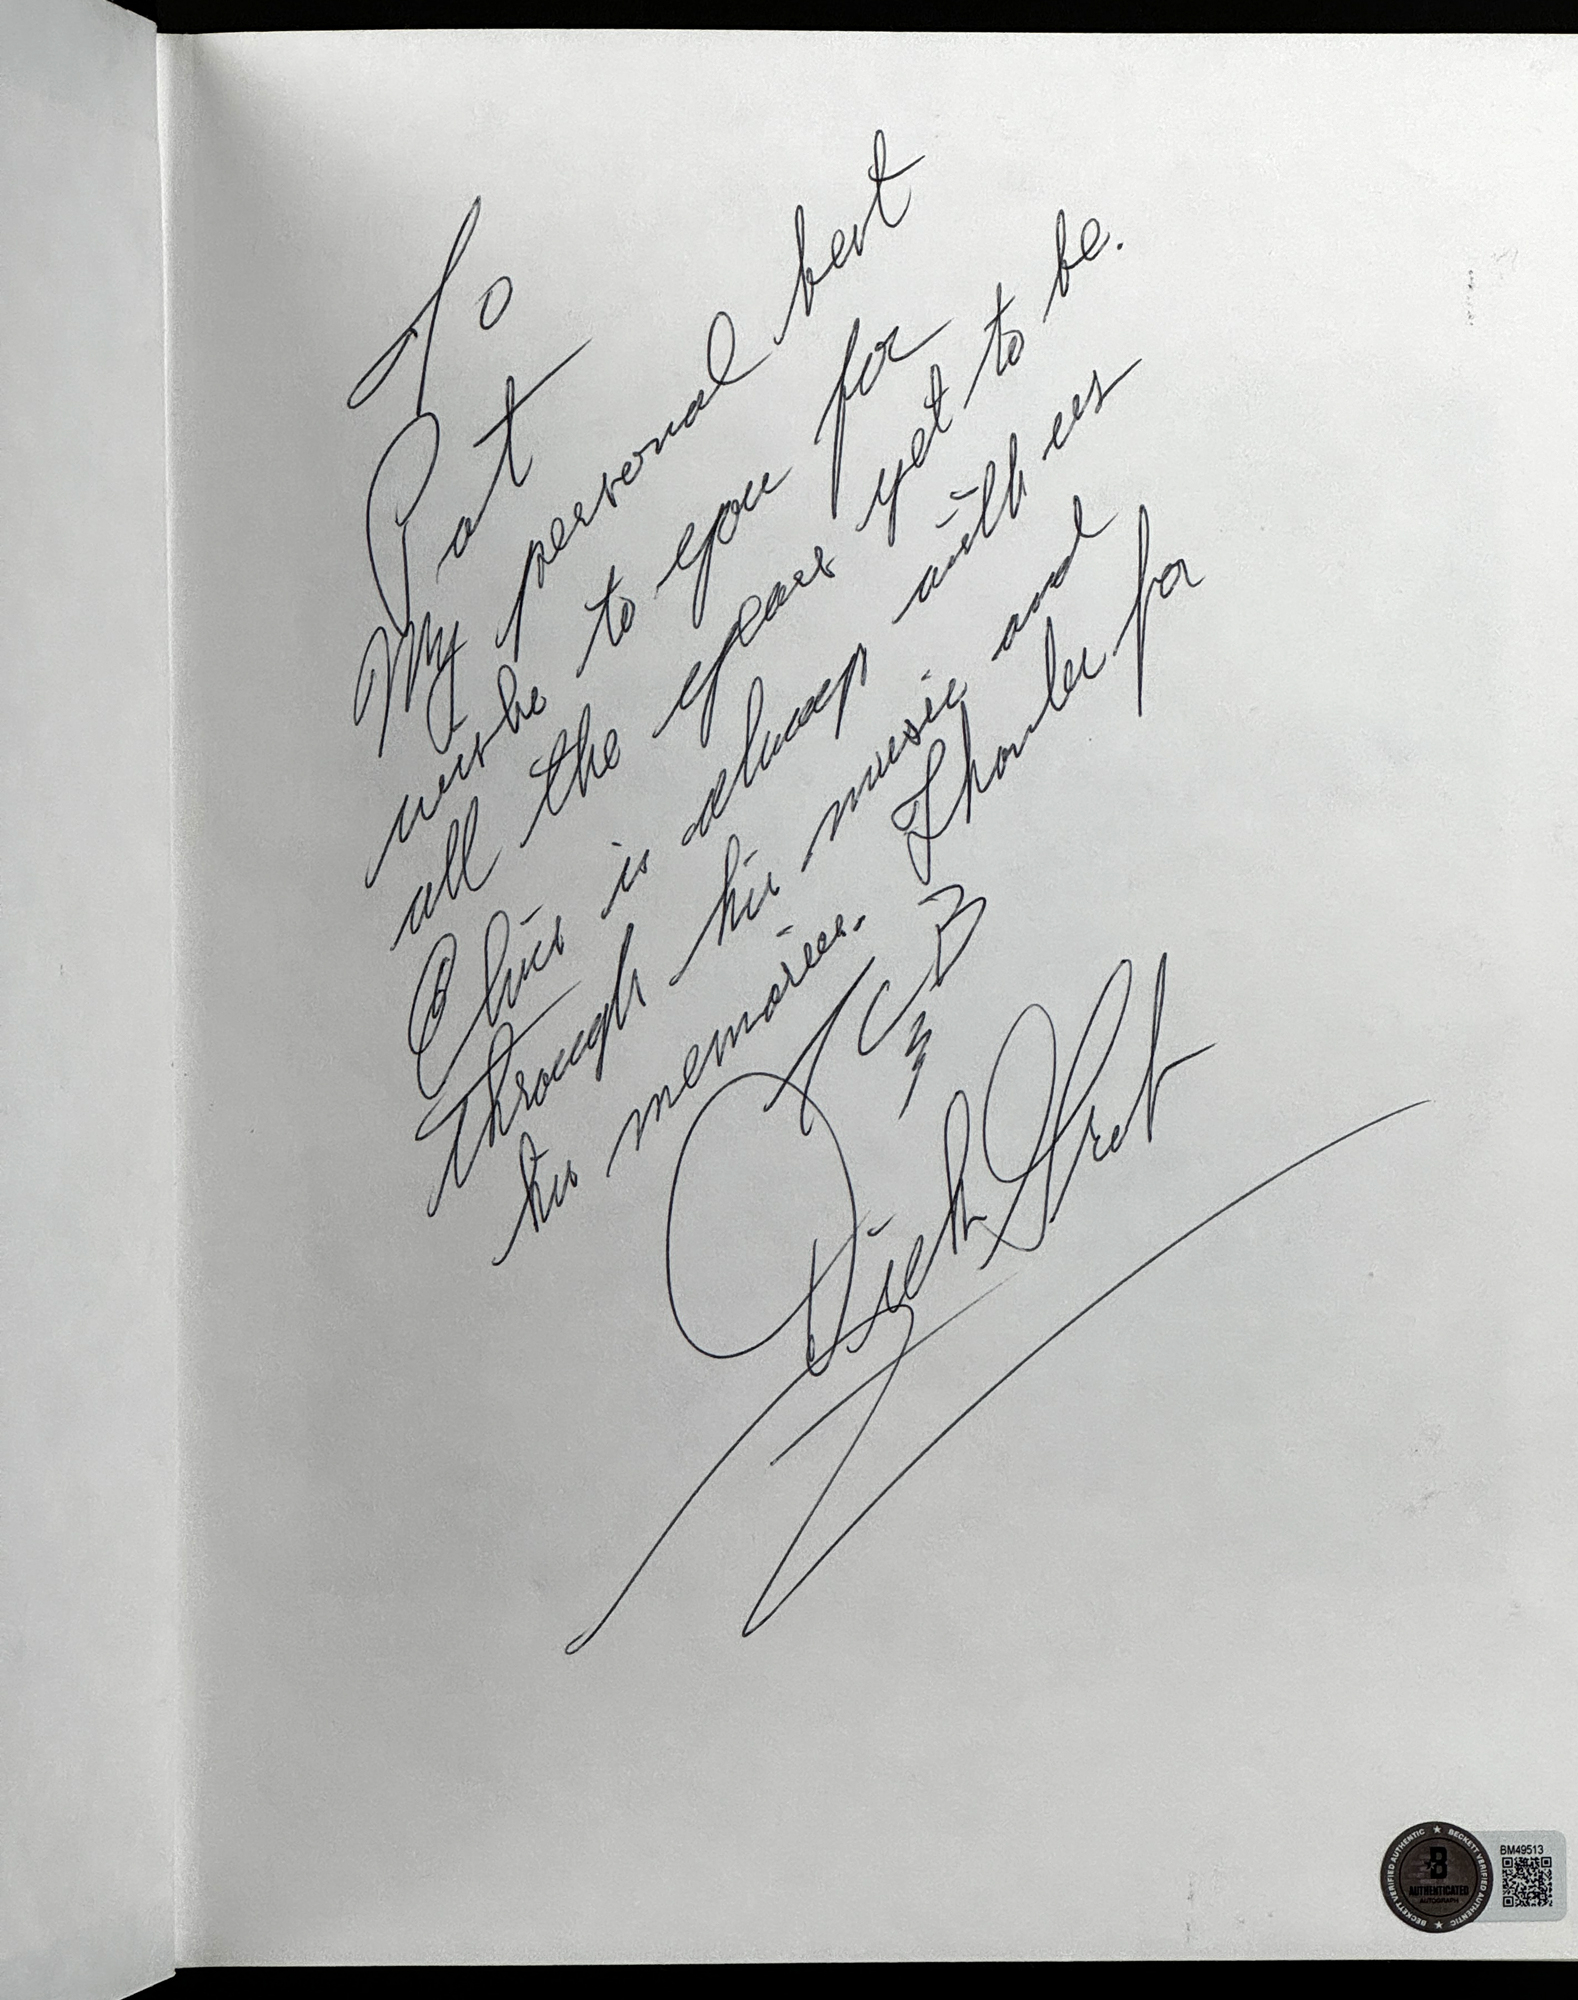 To
Pat
My personal best
wishe to you for
all the years yet to be.
Elvis is always with us
through his music and
his memories. Thanks for
TCB
Dick Grob
BECKETT VERIFIED AUTHENTIC
BECKETT VERIFIED AUTHENTIC
B
AUTHENTICATED
AUTOGRAPH
BM49513